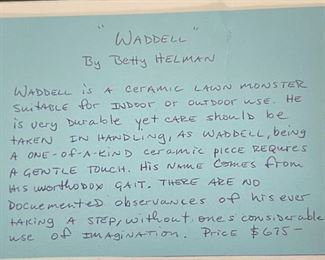 "WADDELL"
By Betty HELMAN
WADDELL is A CERAMIC LAWN MONSTER
SUITABLE for INDOOR or OUTDOOR USE. He
is very Durable yet CARE should be
TAKEN IN HANDLING, AS WADDELL, being
A ONE-OF-A-KIND CERAMIC piece REQUIRES
A GENTLE TOUCH. His NAME COMES from
His UNORTHODOX GAIT. THERE ARE NO
DOCUEMENTED OBSERVANCES of his ever
TAKING A STEP, without one's considerable
use of IMAGINATION. PRICE $675-